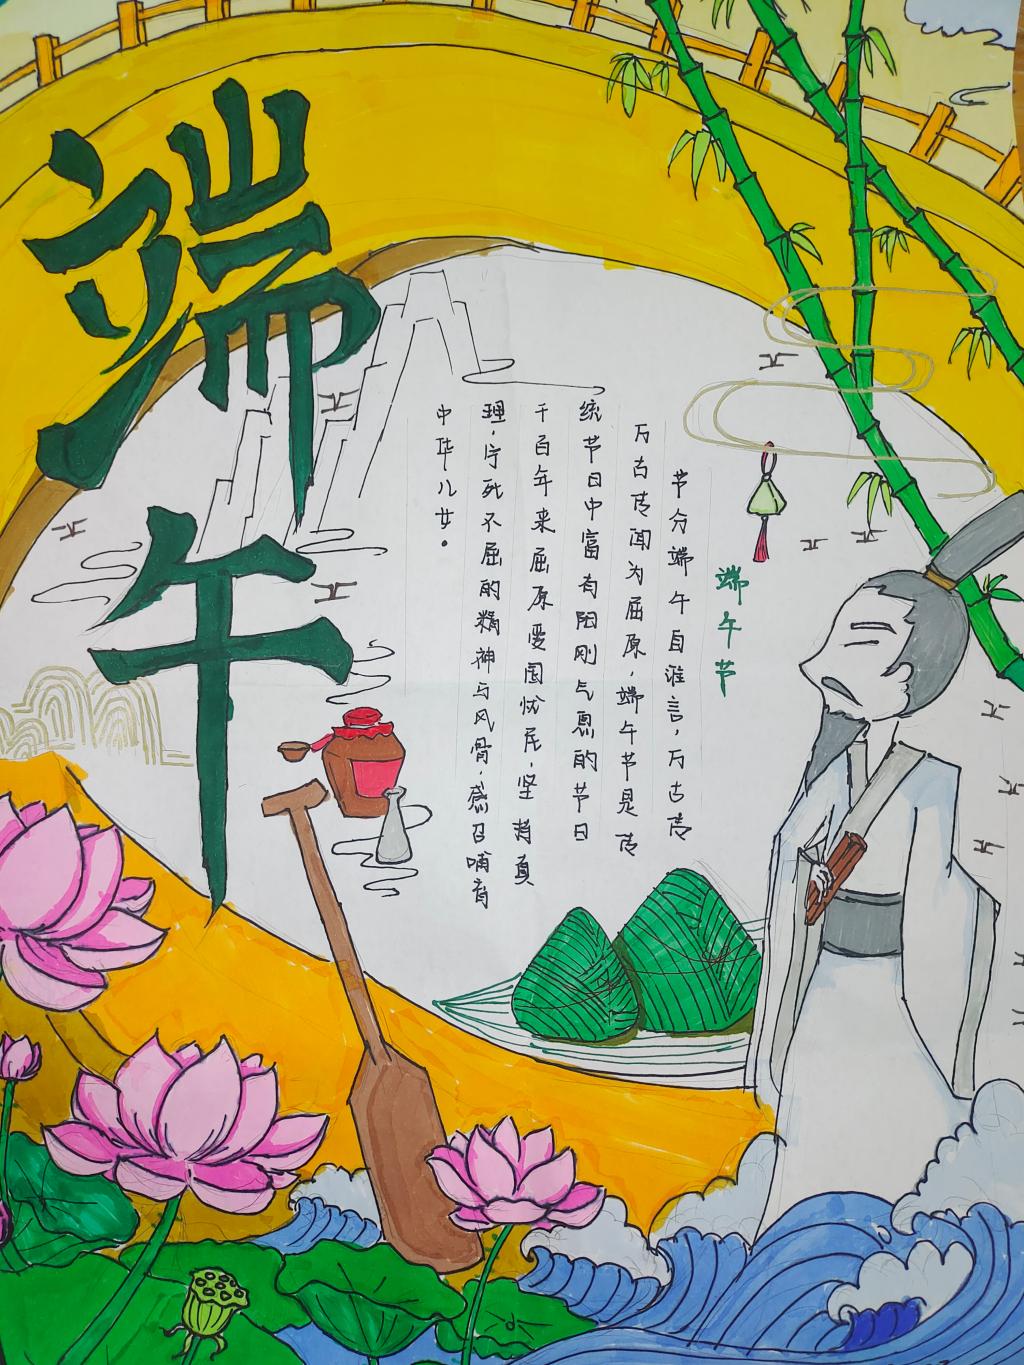 端午
端午节
节分端午自谁言，万古传
万古传闻为屈原，端午节是传
统节日中富有阳刚气息的节日
千百年来屈原爱国忧民，坚持真
理，宁死不屈的精神与风骨，感召哺育
中华儿女。